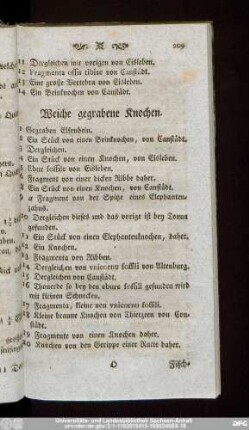 209
11 Dergleichen mit vorigen von Eisleben.
12 Fragmenta ossis tibiae von Canstädt.
13 Eine große Vertebra von Eisleben.
14 Ein Beinknochen von Canstädt.
Weiche gegrabene Knochen.
1 Gegraben Elfenbein.
2 Ein Stück von einen Beinknochen, von Canstädt.
3 Dergleichen.
4 Ein Stück von einen Knochen, von Eisleben.
5 Ebur fossile von Eisleben.
6 Fragment von einer dicken Ribbe daher.
7 Ein Stück von einen Knochen, von Canstädt.
Fragment von der Spitze eines Elephanten-
zahns.
10 Dergleichen dieses und das vorige ist bey Tonna
gefunden.
11 Ein Stück von einen Elephantenknochen, daher.
12 Ein Knochen.
13 Fragmenta von Ribben.
14 Dergleichen von unicornu fossili von Altenburg.
15 Dergleichen von Canstädt.
16 Tonerde so bey den ebure fossili gefunden wird
mit kleinen Schnecken.
17 Fragmenta, kleine von unicornu fossili.
18 Kleine braune Knochen von Thierzen von Can-
städt.
19 Fragmente von einen Knochen daher.
20 Knochen von den Gerippe einer Ratte daher.
O
Fisch-
Universitäts- und Landesbibliothek Sachsen-Anhalt